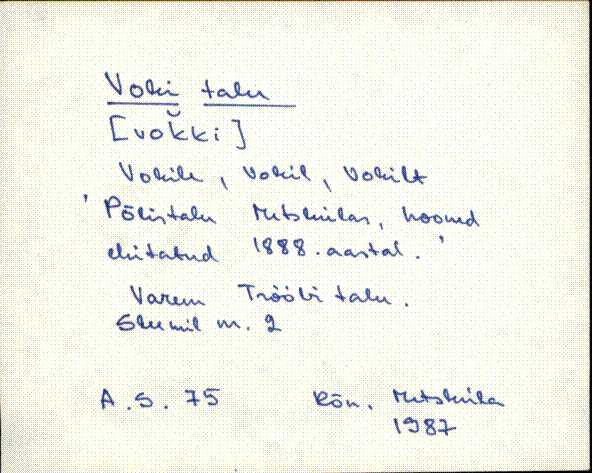 Voki talu
[vok̆ki]
Vokile, Vokil, Vokilt
'Põlistalu Metskülas, hooned
ehitatud 1888. aastal.'
Varem Trööbi talu.
Skeemil nr. 2
A.S. 75 Kõn. Metsküla
1987